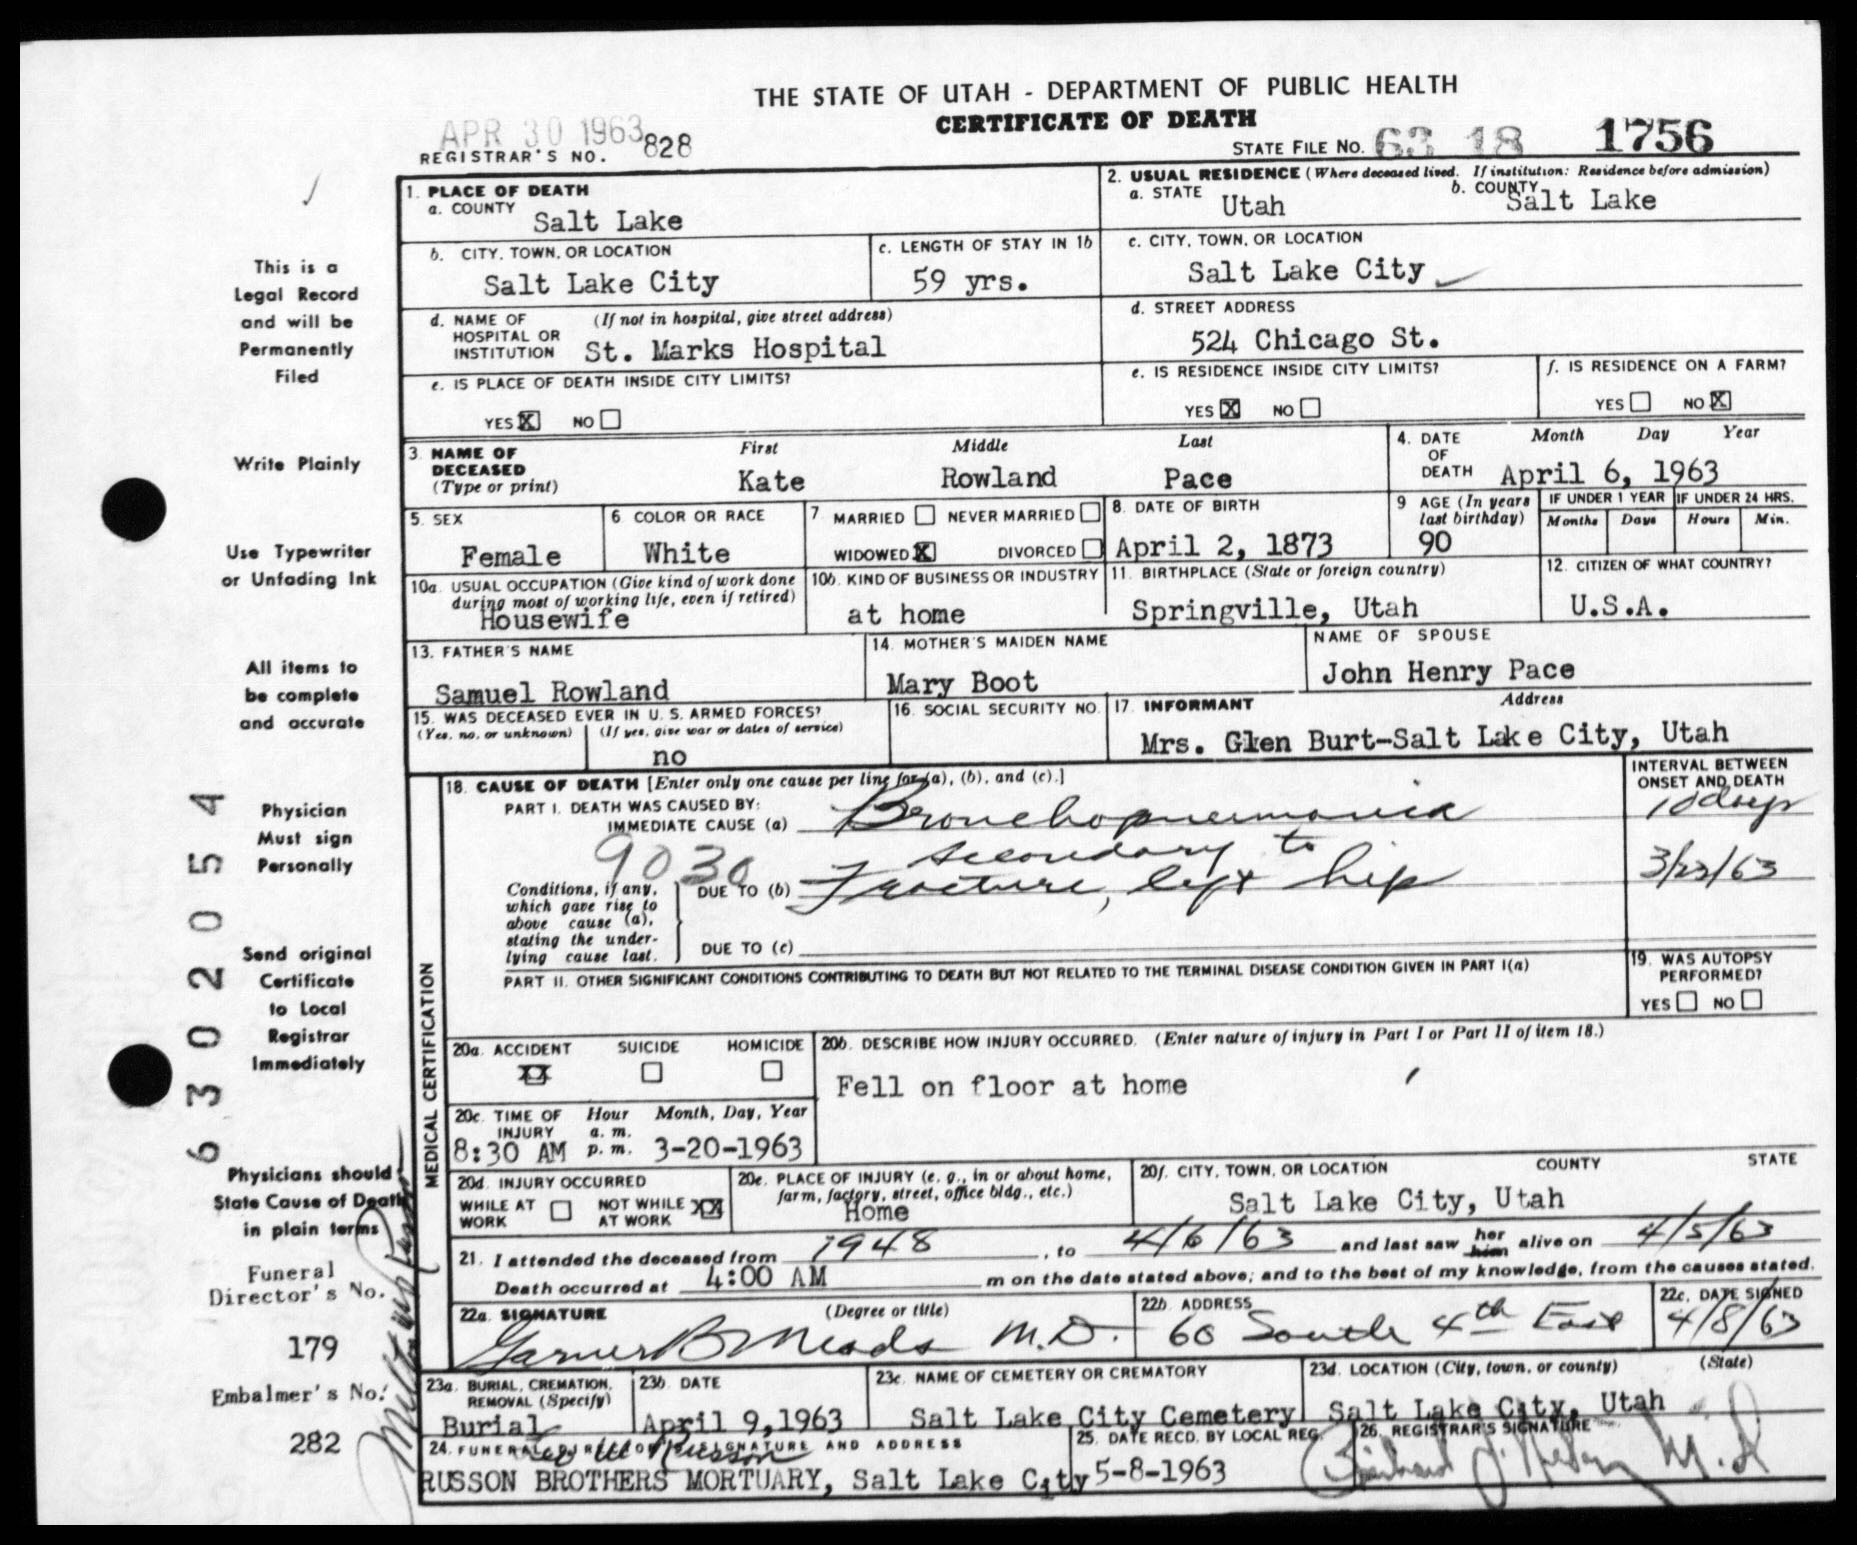 THE STATE OF UTAH - DEPARTMENT OF PUBLIC HEALTH
CERTIFICATE OF DEATH
APR 30 1963
REGISTRAR'S NO. 828
STATE FILE NO. 63 18 1756
This is a
Legal Record
and will be
Permanently
Filed
Write Plainly
Use Typewriter
or Unfading Ink
All items to
be complete
and accurate
Physician
Must sign
Personally
Send original
Certificate
to Local
Registrar
Immediately
Physicians should
State Cause of Death
in plain terms
Funeral
Director's No.
179
Embalmer's No.
282
6302054
1. PLACE OF DEATH
a. COUNTY Salt Lake
2. USUAL RESIDENCE (Where deceased lived. If institution: Residence before admission)
a. STATE Utah b. COUNTY Salt Lake
b. CITY, TOWN, OR LOCATION Salt Lake City
c. LENGTH OF STAY IN 1b 59 yrs.
c. CITY, TOWN, OR LOCATION Salt Lake City
d. NAME OF HOSPITAL OR INSTITUTION (If not in hospital, give street address) St. Marks Hospital
d. STREET ADDRESS 524 Chicago St.
e. IS PLACE OF DEATH INSIDE CITY LIMITS?
YES X NO
e. IS RESIDENCE INSIDE CITY LIMITS?
YES X NO
f. IS RESIDENCE ON A FARM?
YES NO X
3. NAME OF DECEASED (Type or print)
First Middle Last
Kate Rowland Pace
4. DATE OF DEATH Month Day Year
April 6, 1963
5. SEX Female
6 COLOR OR RACE White
7. MARRIED NEVER MARRIED
WIDOWED X DIVORCED
8. DATE OF BIRTH April 2, 1873
9 AGE (In years last birthday) 90
IF UNDER 1 YEAR Months Days
IF UNDER 24 HRS. Hours Min.
10a. USUAL OCCUPATION (Give kind of work done during most of working life, even if retired) Housewife
10b. KIND OF BUSINESS OR INDUSTRY at home
11. BIRTHPLACE (State or foreign country) Springville, Utah
12. CITIZEN OF WHAT COUNTRY? U.S.A.
13. FATHER'S NAME Samuel Rowland
14. MOTHER'S MAIDEN NAME Mary Boot
NAME OF SPOUSE John Henry Pace
15. WAS DECEASED EVER IN U. S. ARMED FORCES?
(Yes, no, or unknown) (If yes, give war or dates of service)
no
16. SOCIAL SECURITY NO.
17. INFORMANT Address
Mrs. Glen Burt-Salt Lake City, Utah
MEDICAL CERTIFICATION
18. CAUSE OF DEATH [Enter only one cause per line for (a), (b), and (c).]
INTERVAL BETWEEN ONSET AND DEATH
PART I. DEATH WAS CAUSED BY:
IMMEDIATE CAUSE (a) Bronchopneumonia 10 days
9030 secondary to
Conditions, if any, which gave rise to above cause (a), stating the underlying cause last.
DUE TO (b) Fracture, left hip 3/23/63
DUE TO (c)
PART II. OTHER SIGNIFICANT CONDITIONS CONTRIBUTING TO DEATH BUT NOT RELATED TO THE TERMINAL DISEASE CONDITION GIVEN IN PART I(a)
19. WAS AUTOPSY PERFORMED?
YES NO
20a. ACCIDENT SUICIDE HOMICIDE
XX
20b. DESCRIBE HOW INJURY OCCURRED. (Enter nature of injury in Part I or Part II of item 18.)
Fell on floor at home
20c. TIME OF INJURY Hour a. m. p. m. Month, Day, Year
8:30 AM 3-20-1963
20d. INJURY OCCURRED
WHILE AT WORK NOT WHILE AT WORK XX
20e. PLACE OF INJURY (e. g., in or about home, farm, factory, street, office bldg., etc.)
Home
20f. CITY, TOWN, OR LOCATION COUNTY STATE
Salt Lake City, Utah
21. I attended the deceased from 1948, to 4/6/63 and last saw her him alive on 4/5/63
Death occurred at 4:00 AM m on the date stated above; and to the best of my knowledge, from the causes stated.
22a. SIGNATURE (Degree or title)
Garner B Meads M.D.
22b. ADDRESS
60 South 4th East
22c. DATE SIGNED
4/8/63
23a. BURIAL, CREMATION, REMOVAL (Specify)
Burial
23b. DATE
April 9, 1963
23c. NAME OF CEMETERY OR CREMATORY
Salt Lake City Cemetery
23d. LOCATION (City, town, or county) (State)
Salt Lake City, Utah
24. FUNERAL DIRECTOR'S SIGNATURE AND ADDRESS
RUSSON BROTHERS MORTUARY, Salt Lake City
25. DATE RECD. BY LOCAL REG.
5-8-1963
26. REGISTRAR'S SIGNATURE
M.D